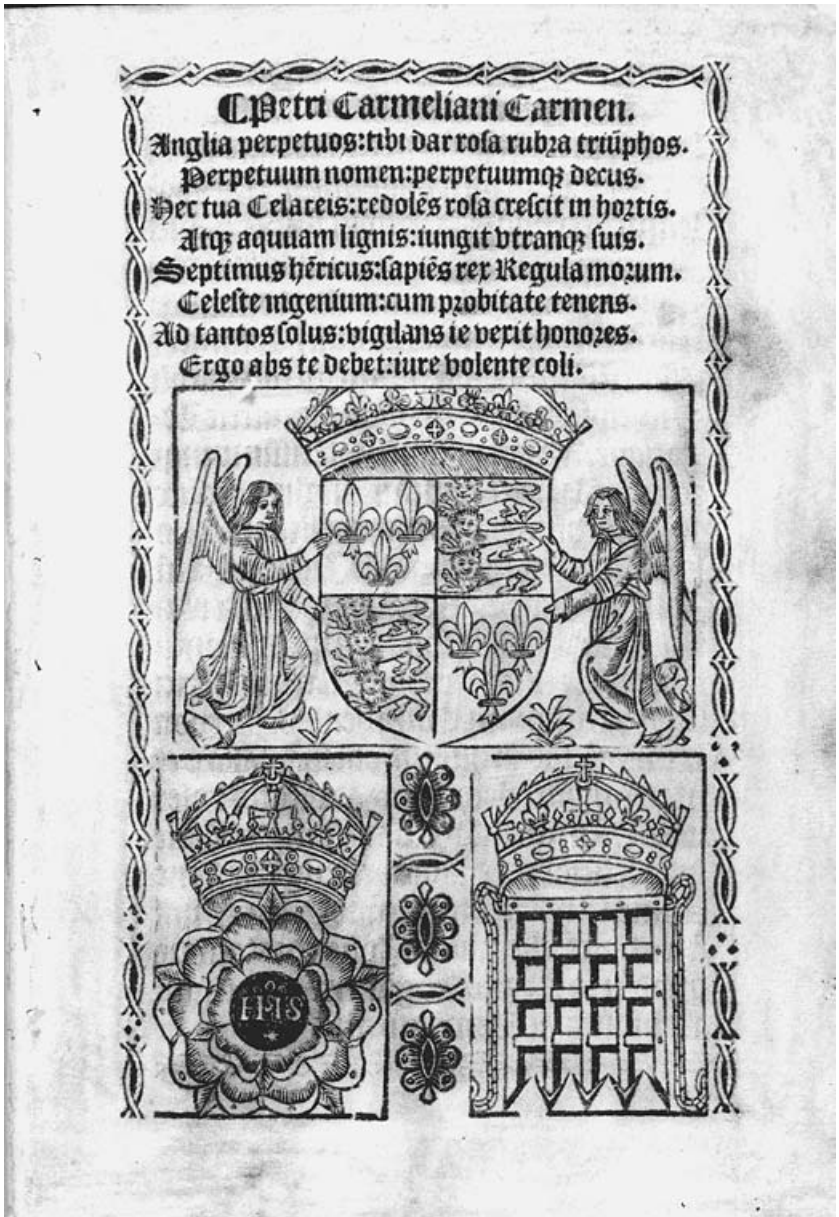 ¶Petri Carmeliani Carmen.
Anglia perpetuos:tibi dat rosa rubra triūphos.
Perpetuum nomen:perpetuumqꝫ decus.
Hec tua Celareis:redolēs rosa crescit in hortis.
Atqꝫ aquilam lignis:iungit vtranqꝫ suis.
Septimus hēricus:sapiēs rex Regula morum.
Celeste ingenium:cum probitate tenens.
Ad tantos solus:vigilans te vexit honores.
Ergo abs te debet:iure volente coli.
IHS